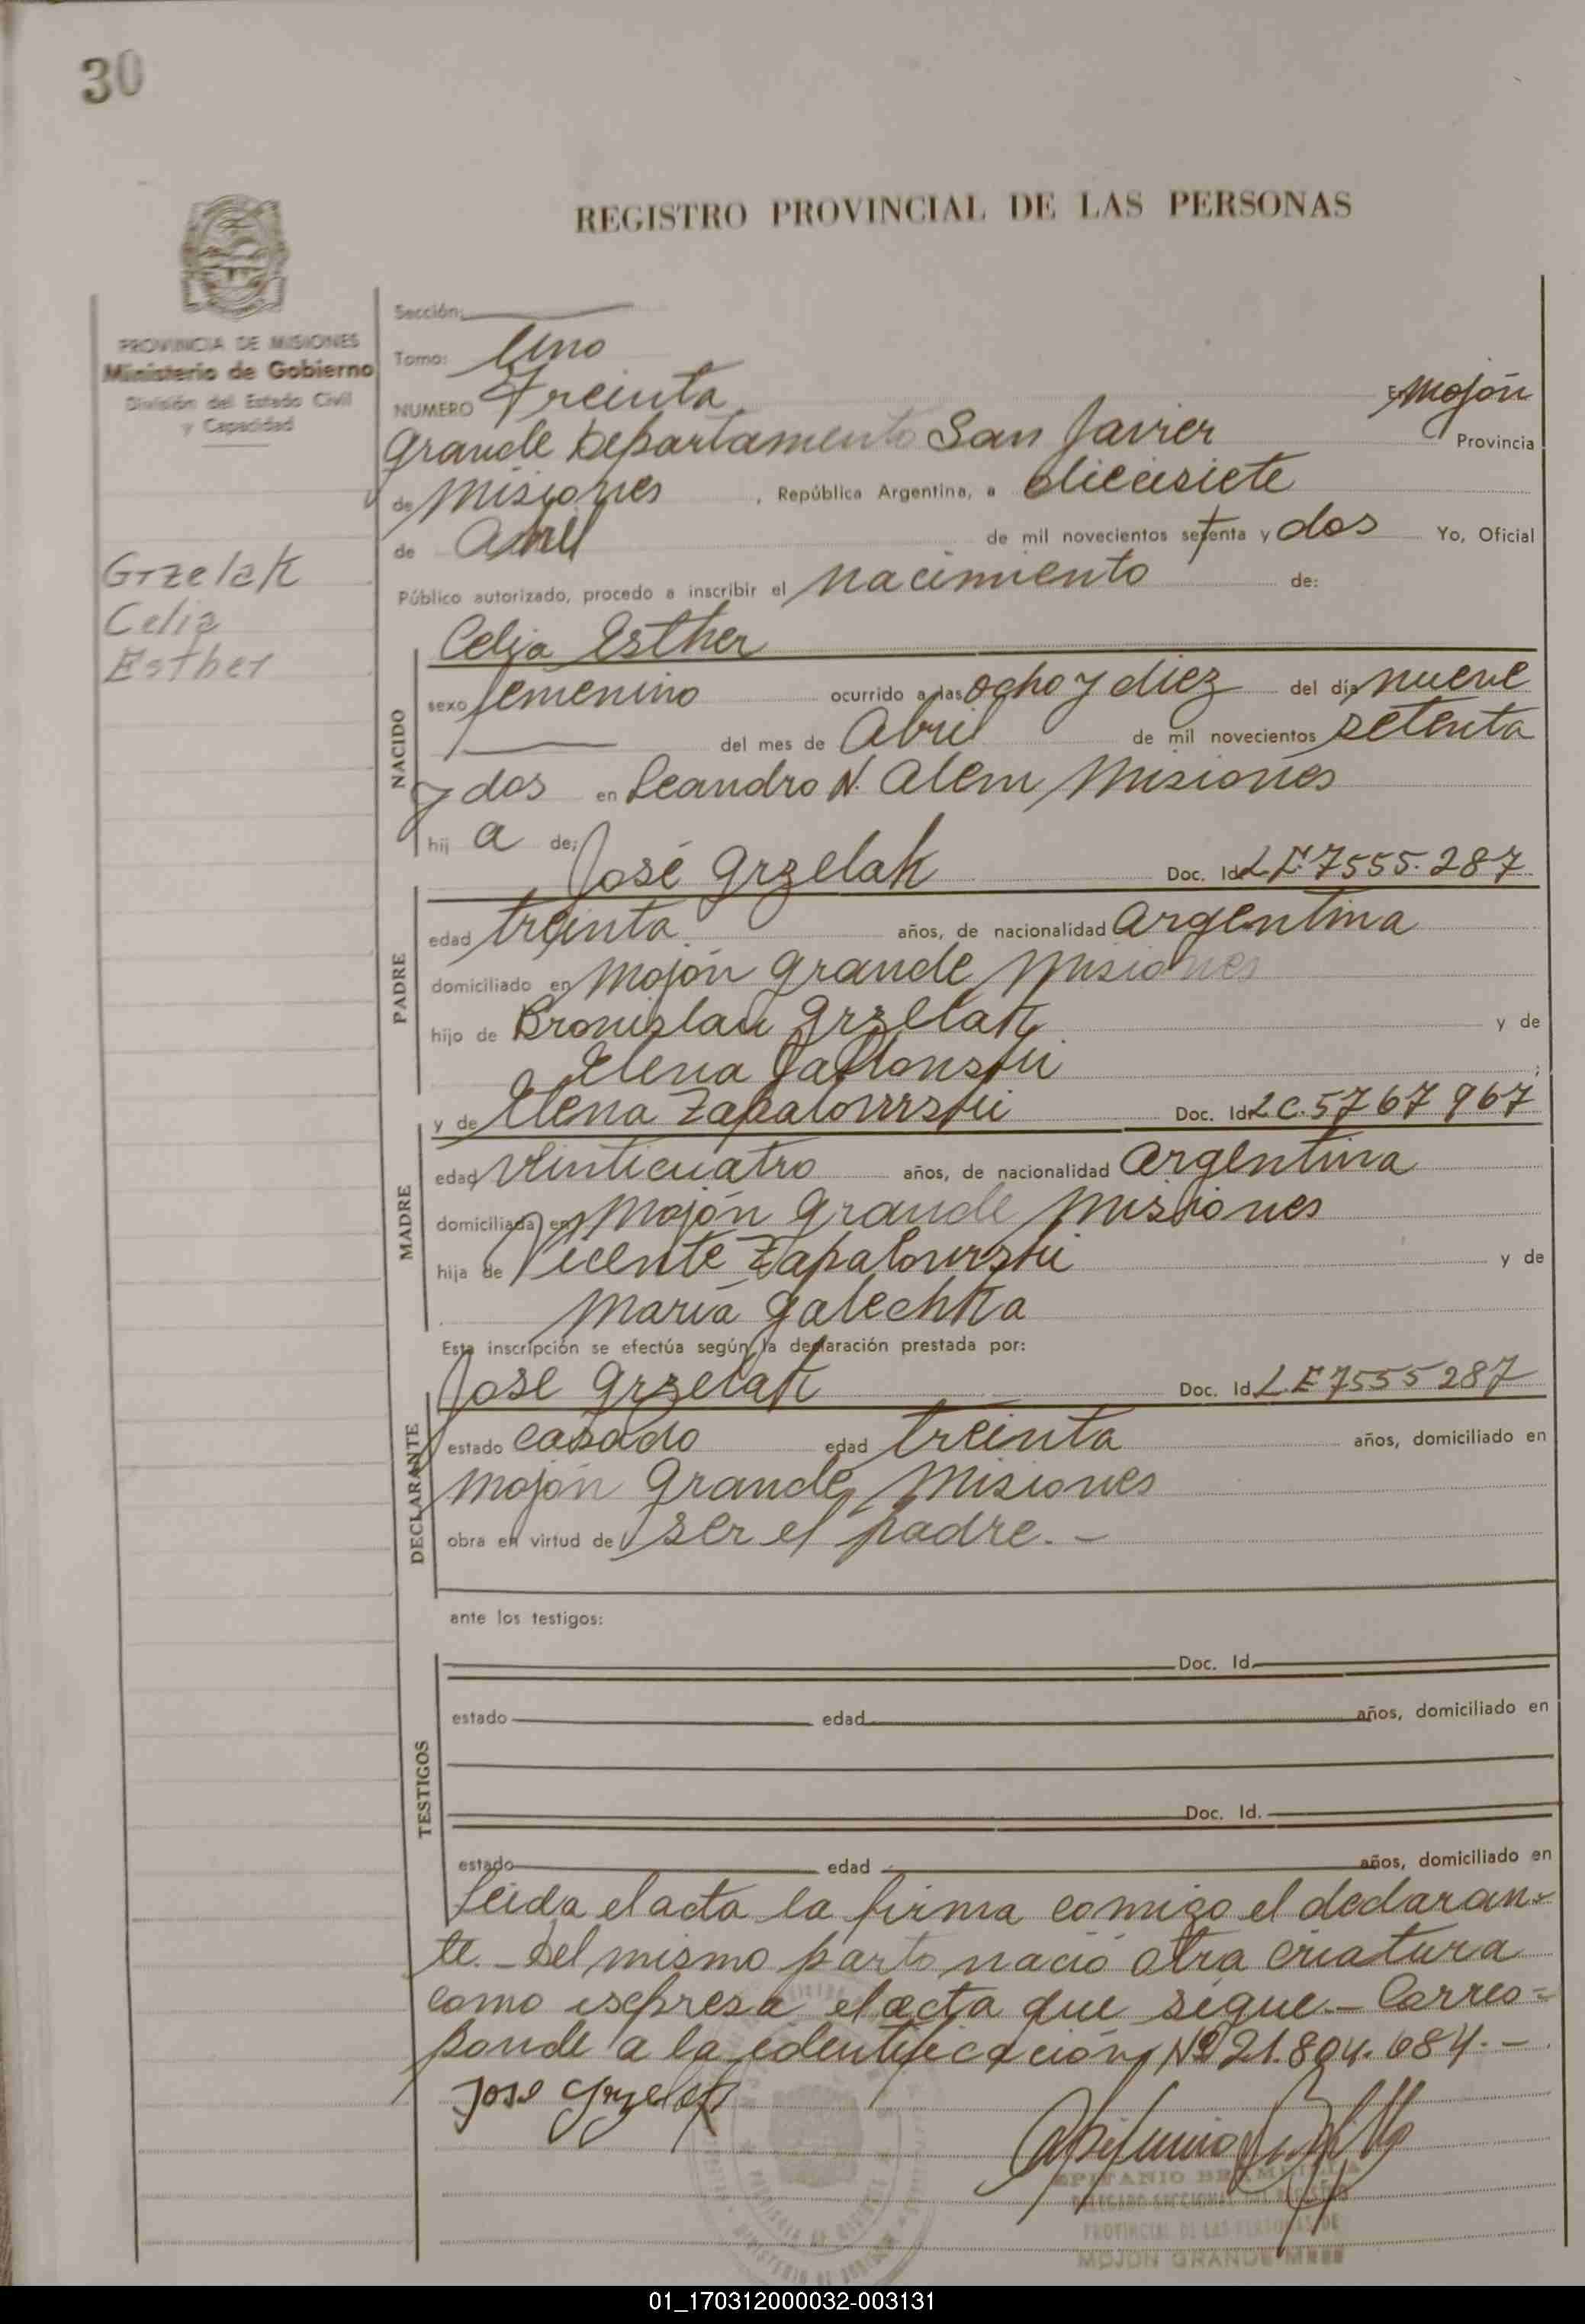 30
REGISTRO PROVINCIAL DE LAS PERSONAS
PROVINCIA DE MISIONES
Ministerio de Gobierno
División del Estado Civil
y Capacidad
Grzelak
Celia
Esther
Sección:
Tomo: Uno
NUMERO Treinta En Mojón
Grande Departamento San Javier Provincia
de Misiones , República Argentina, a diecisiete
de Abril de mil novecientos setenta y dos Yo, Oficial
Público autorizado, procedo a inscribir el nacimiento de:
NACIDO
Celia Esther
sexo femenino ocurrido a las ocho y diez del día nueve
del mes de Abril de mil novecientos setenta
y dos en Leandro N. Alem Misiones
hij a de:
PADRE
José Grzelak Doc. Id. L.E. 7555.287
edad treinta años, de nacionalidad Argentina
domiciliado en Mojón Grande Misiones
hijo de Bronislau Grzelak y de
Elena Jablonski ;
MADRE
y de Elena Zapalowski Doc. Id. L.C. 5767967
edad veinticuatro años, de nacionalidad Argentina
domiciliada en Mojón Grande Misiones
hija de Vicente Zapalowski y de
María Galechka
Esta inscripción se efectúa según la declaración prestada por:
DECLARANTE
José Grzelak Doc. Id. L.E 7555287
estado casado edad treinta años, domiciliado en
Mojón Grande, Misiones
obra en virtud de ser el padre. -
ante los testigos:
TESTIGOS
Doc. Id.
estado edad años, domiciliado en
Doc. Id.
estado edad años, domiciliado en
Leida el acta la firma comigo el declaran-
te. - Del mismo parto nació otra criatura
como esepresa el acta que sigue. - Corres=
ponde a la identificación Nº 21.804.684. -
José Grzelak
EPIFANIO BRAMBILLA
DELEGADO SECCIONAL DEL REGISTRO
PROVINCIAL DE LAS PERSONAS DE
MOJON GRANDE
01_170312000032-003131